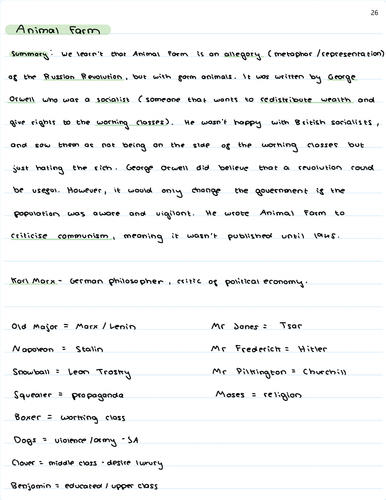 26
Animal Farm
Summary: We learn't that Animal Farm is an allegory (metaphor/representation)
of the Russian Revolution, but with farm animals. It was written by George
Orwell who was a socialist (someone that wants to redistribute wealth and
give rights to the working classes). He wasn't happy with British socialists,
and saw them as not being on the side of the working classes but
just hating the rich. George Orwell did believe that a revolution could
be useful. However, it would only change the government if the
population was aware and vigilant. He wrote Animal Farm to
criticise communism, meaning it wasn't published until 1945.
Karl Marx - German philosopher, critic of political economy.
Old Major = Marx / Lenin
Mr Jones = Tsar
Napoleon = Stalin
Mr Frederick = Hitler
Snowball = Leon Trotsky
Mr Pilkington = Churchill
Squealer = propaganda
Moses = religion
Boxer = working class
Dogs = violence/army - SA
Clover = middle class - desire luxury
Benjamin = educated / upper class